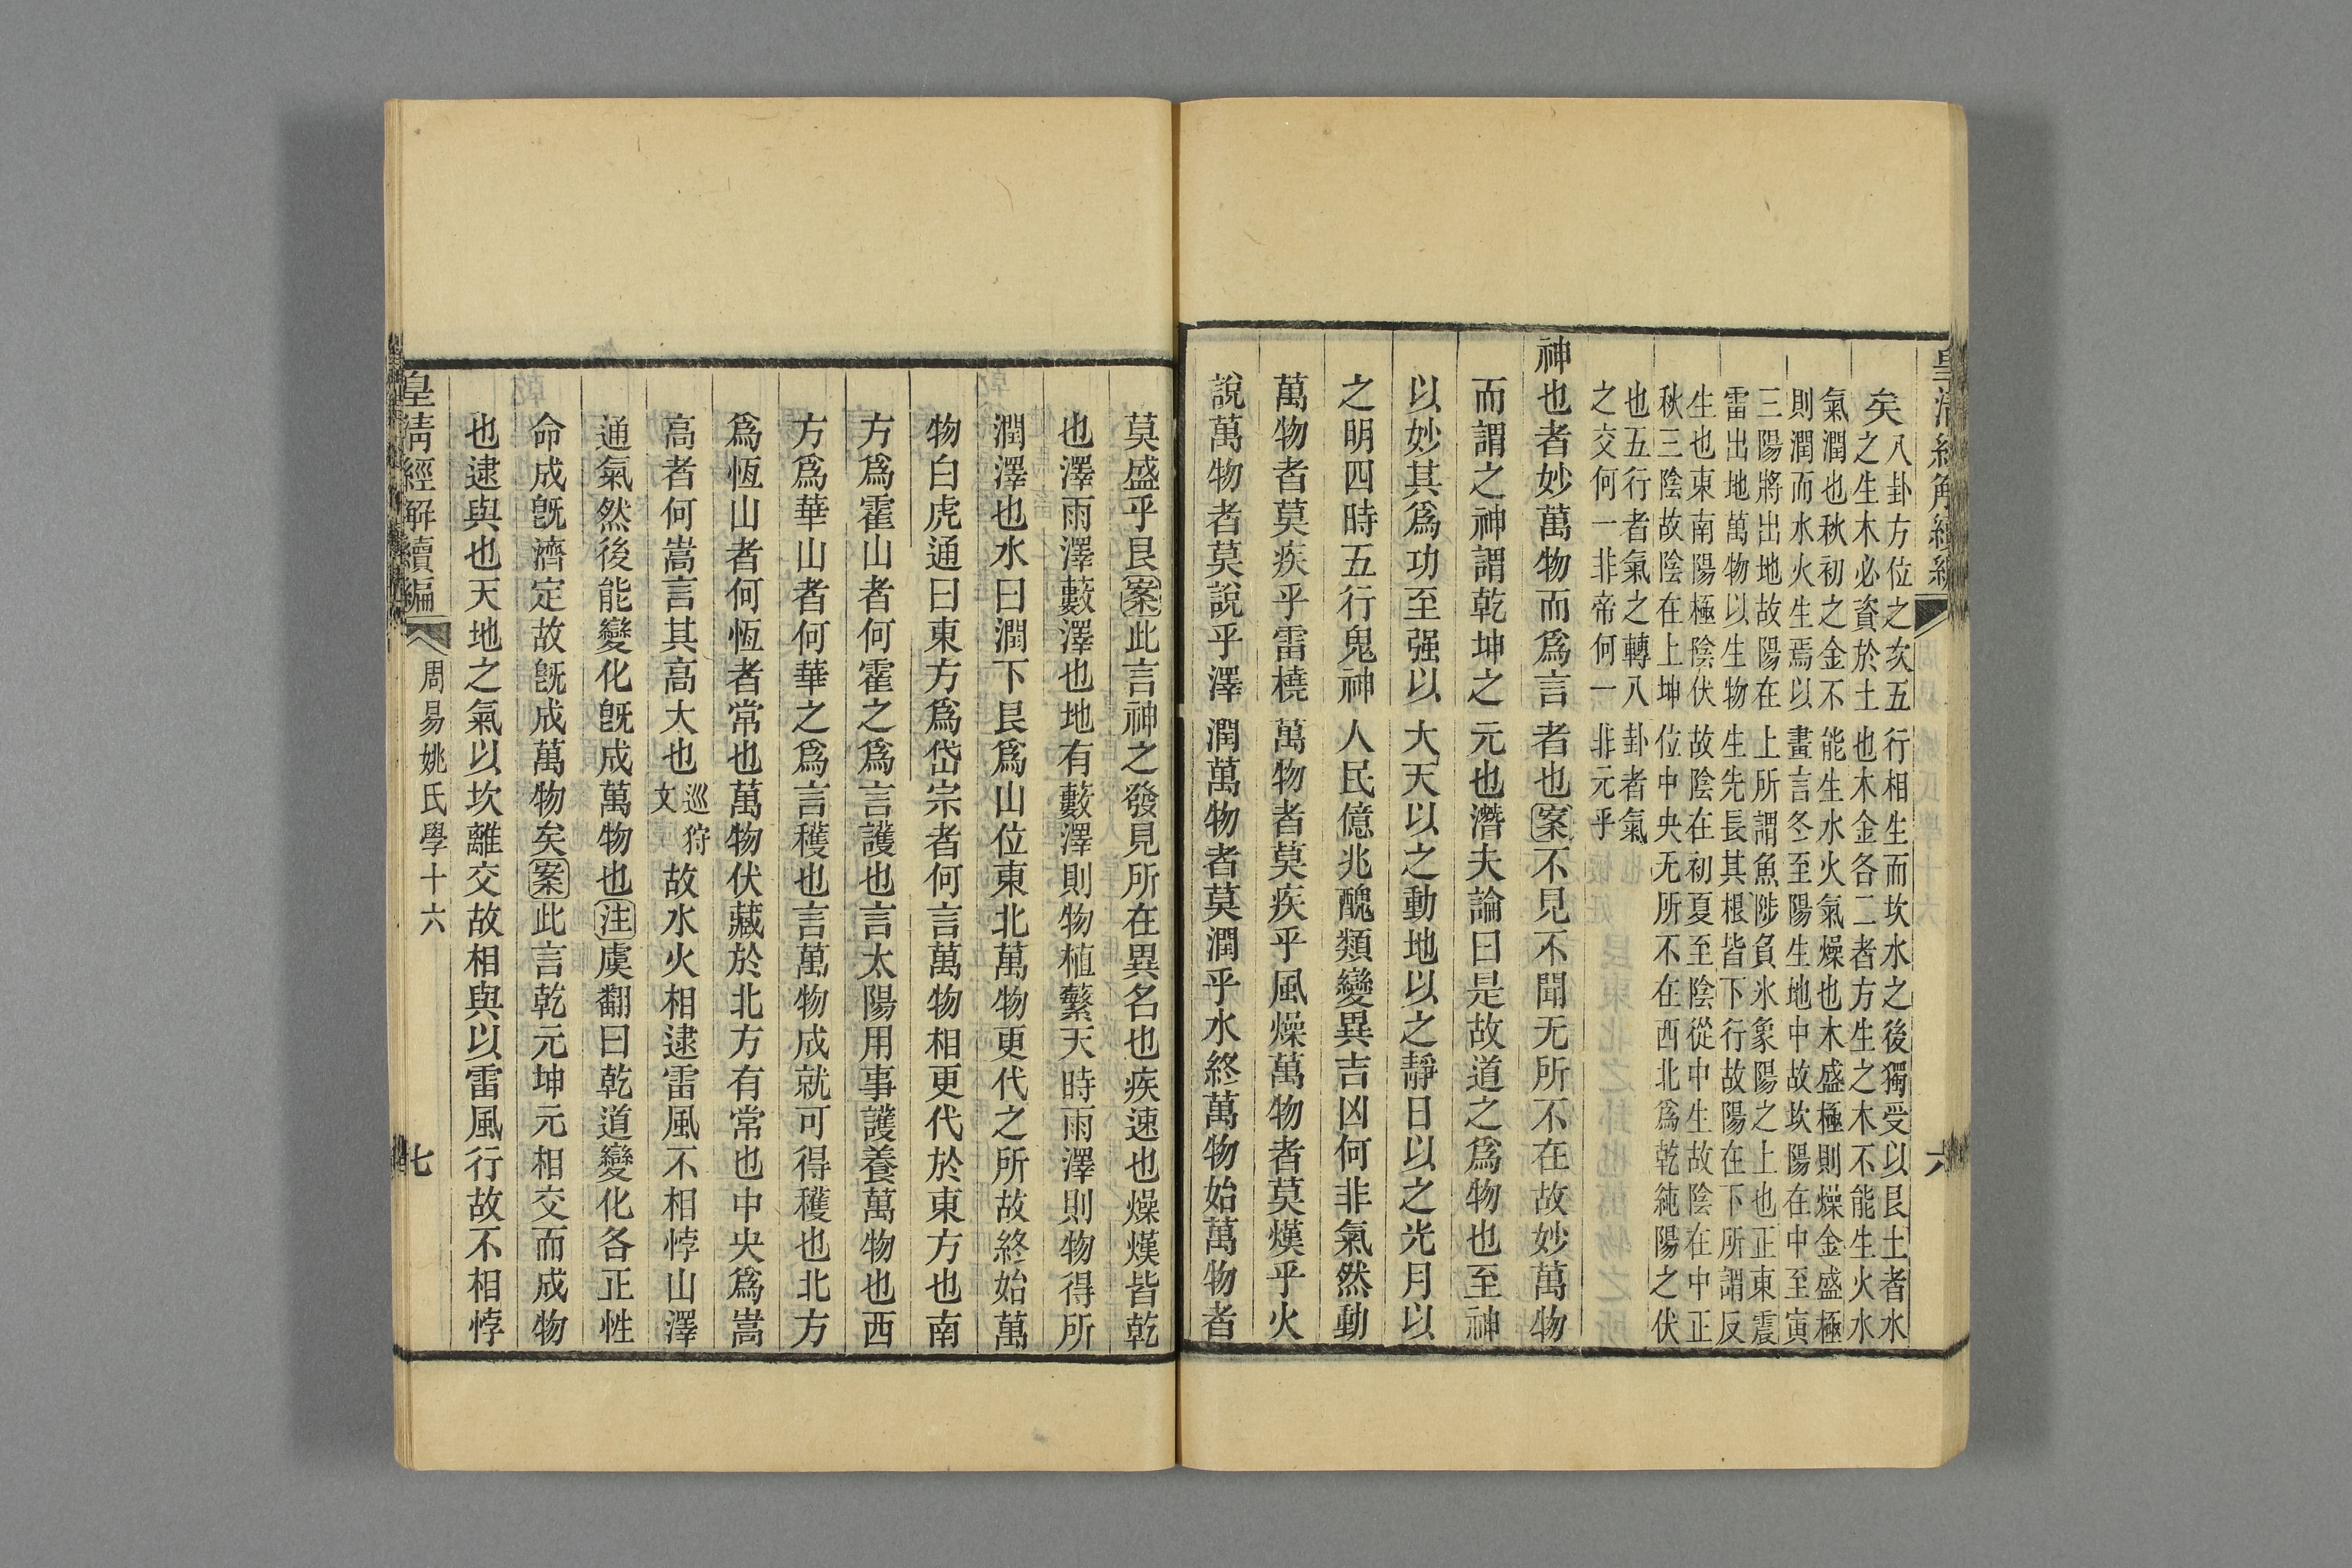 皇清經解續編 六
矣八卦方位之次五行相生而坎水之後獨受以艮土者水
之生木必資於土也木金各二者方生之木不能生火水
氣潤也秋初之金不能生水火氣燥也木盛極則燥金盛極
則潤而水火生焉以畫言冬至陽生地中故坎陽在中至寅
三陽將出地故陽在上所謂魚陟負氷象陽之上也正東震
雷出地萬物以生物生先長其根皆下行故陽在下所謂反
生也東南陽極陰伏故陰在初夏至陰從中生故陰在中正
秋三陰故陰在上坤位中央无所不在西北爲乾純陽之伏
也五行者氣之轉八卦者氣
之交何一非帝何一非元乎
神也者妙萬物而爲言者也案不見不聞无所不在故妙萬物
而謂之神謂乾坤之元也潛夫論曰是故道之爲物也至神
以妙其爲功至强以大天以之動地以之靜日以之光月以
之明四時五行鬼神人民億兆醜類變異吉凶何非氣然動
萬物者莫疾乎雷橈萬物者莫疾乎風燥萬物者莫熯乎火
說萬物者莫說乎澤潤萬物者莫潤乎水終萬物始萬物者
莫盛乎艮案此言神之發見所在異名也疾速也燥熯皆乾
也澤雨澤藪澤也地有藪澤則物植蘩天時雨澤則物得所
潤澤也水曰潤下艮爲山位東北萬物更代之所故終始萬
物白虎通曰東方爲岱宗者何言萬物相更代於東方也南
方爲霍山者何霍之爲言護也言太陽用事護養萬物也西
方爲華山者何華之爲言穫也言萬物成就可得穫也北方
爲恆山者何恆者常也萬物伏藏於北方有常也中央爲嵩
高者何嵩言其高大也巡狩文故水火相逮雷風不相悖山澤
通氣然後能變化旣成萬物也注虞翻曰乾道變化各正性
命成旣濟定故旣成萬物矣案此言乾元坤元相交而成物
也逮與也天地之氣以坎離交故相與以雷風行故不相悖
皇清經解續編 周易姚氏學十六 七